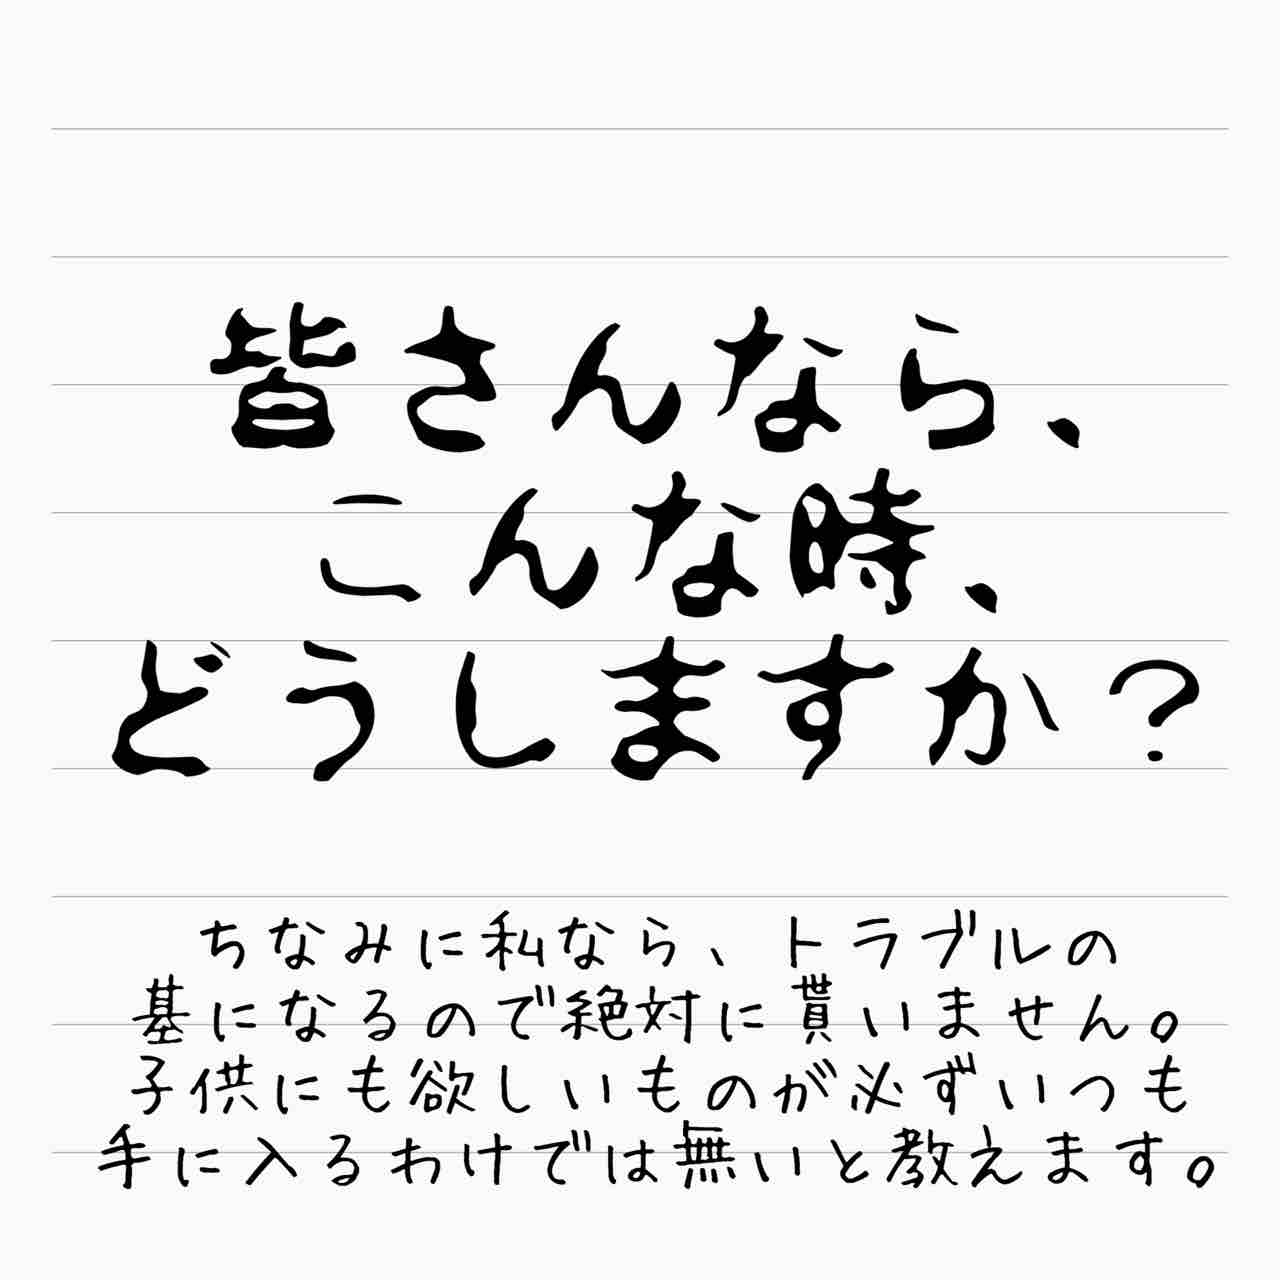 皆さんなら、
こんな時、
どうしますか?
ちなみに私なら、トラブルの
基になるので絶対に貰いません。
子供にも欲しいものが必ずいつも
手に入るわけでは無いと教えます。